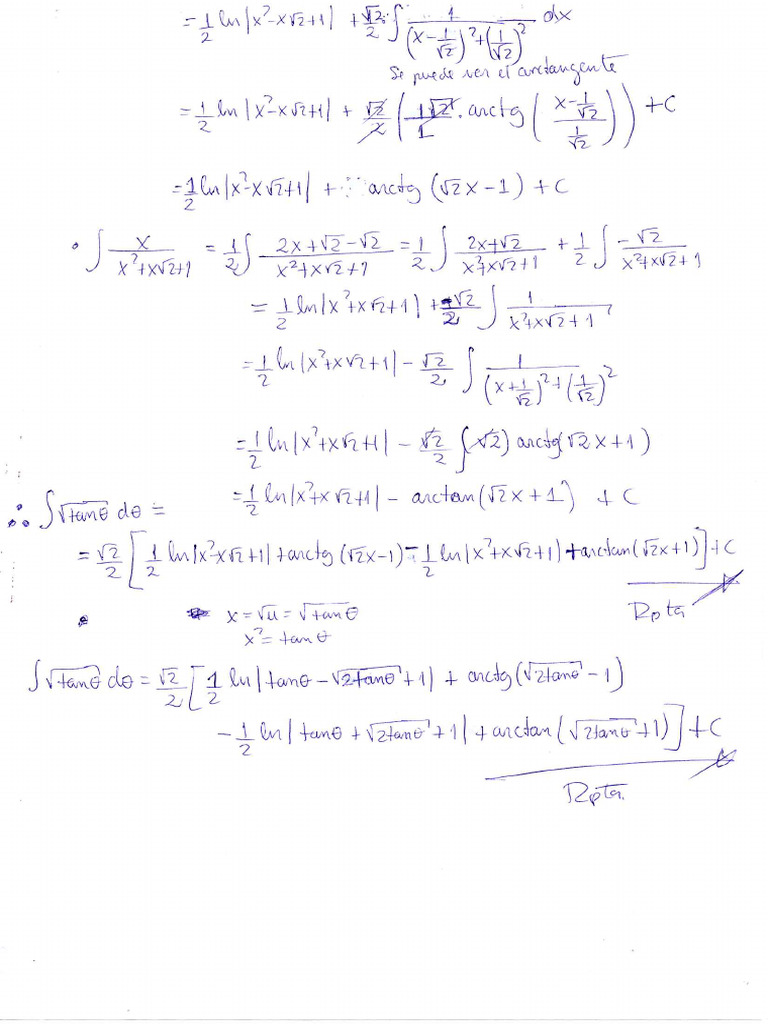 = 1/2 ln|x²-x√2+1| + √2/2 ∫ 1/((x-1/√2)²+(1/√2)²) dx
Se puede ver el arctangente
= 1/2 ln|x²-x√2+1| + √2/2 (1√2/1 · arctg((x-1/√2)/(1/√2))) + C
= 1/2 ln|x²-x√2+1| + arctg(√2x-1) + C
• ∫ x/(x²+x√2+1) = 1/2 ∫ (2x+√2-√2)/(x²+x√2+1) = 1/2 ∫ (2x+√2)/(x²+x√2+1) + 1/2 ∫ -√2/(x²+x√2+1)
= 1/2 ln|x²+x√2+1| + -√2/2 ∫ 1/(x²+x√2+1)
= 1/2 ln|x²+x√2+1| - √2/2 ∫ 1/((x+1/√2)²+(1/√2)²)
= 1/2 ln|x²+x√2+1| - √2/2 (√2) arctg(√2x+1)
= 1/2 ln|x²+x√2+1| - arctan(√2x+1) + C
∴ ∫√tanθ dθ =
= √2/2 [1/2 ln|x²-x√2+1| + arctg(√2x-1) - 1/2 ln|x²+x√2+1| + arctan(√2x+1)] + C
Rpta
x = √u = √tanθ
x² = tanθ
∫√tanθ dθ = √2/2 [1/2 ln|tanθ - √2tanθ + 1| + arctg(√2tanθ - 1)
- 1/2 ln|tanθ + √2tanθ + 1| + arctan(√2tanθ + 1)] + C
Rpta.